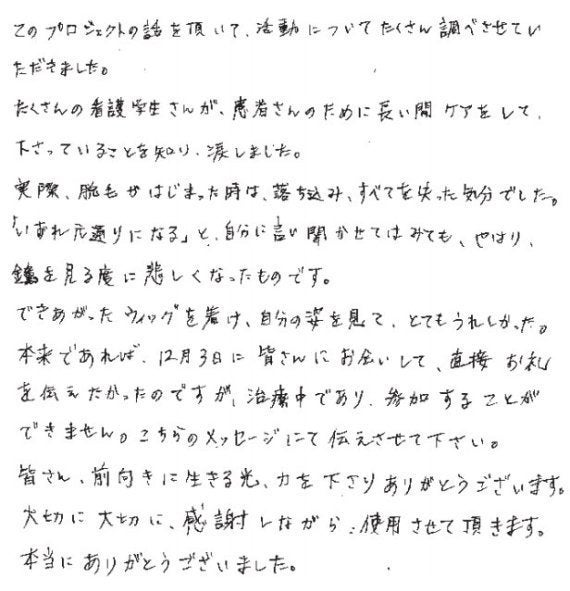 このプロジェクトの話を頂いて、活動についてたくさん調べさせてい
ただきました。
たくさんの看護学生さんが、患者さんのために長い間ケアをして、
下さっていることを知り、涙しました。
実際、脱毛がはじまった時は、落ち込み、すべてを失った気分でした。
「いずれ元通りになる」と、自分に言い聞かせてはみても、やはり、
鏡を見る度に悲しくなったものです。
できあがったウィッグを着け、自分の姿を見て、とてもうれしかった。
本来であれば、12月3日に皆さんにお会いして、直接お礼
を伝えたかったのですが、治療中であり、参加することが
できません。こちらのメッセージにて伝えさせて下さい。
皆さん、前向きに生きる光、力を下さりありがとうございます。
大切に大切に、感謝しながら、使用させて頂きます。
本当にありがとうございました。